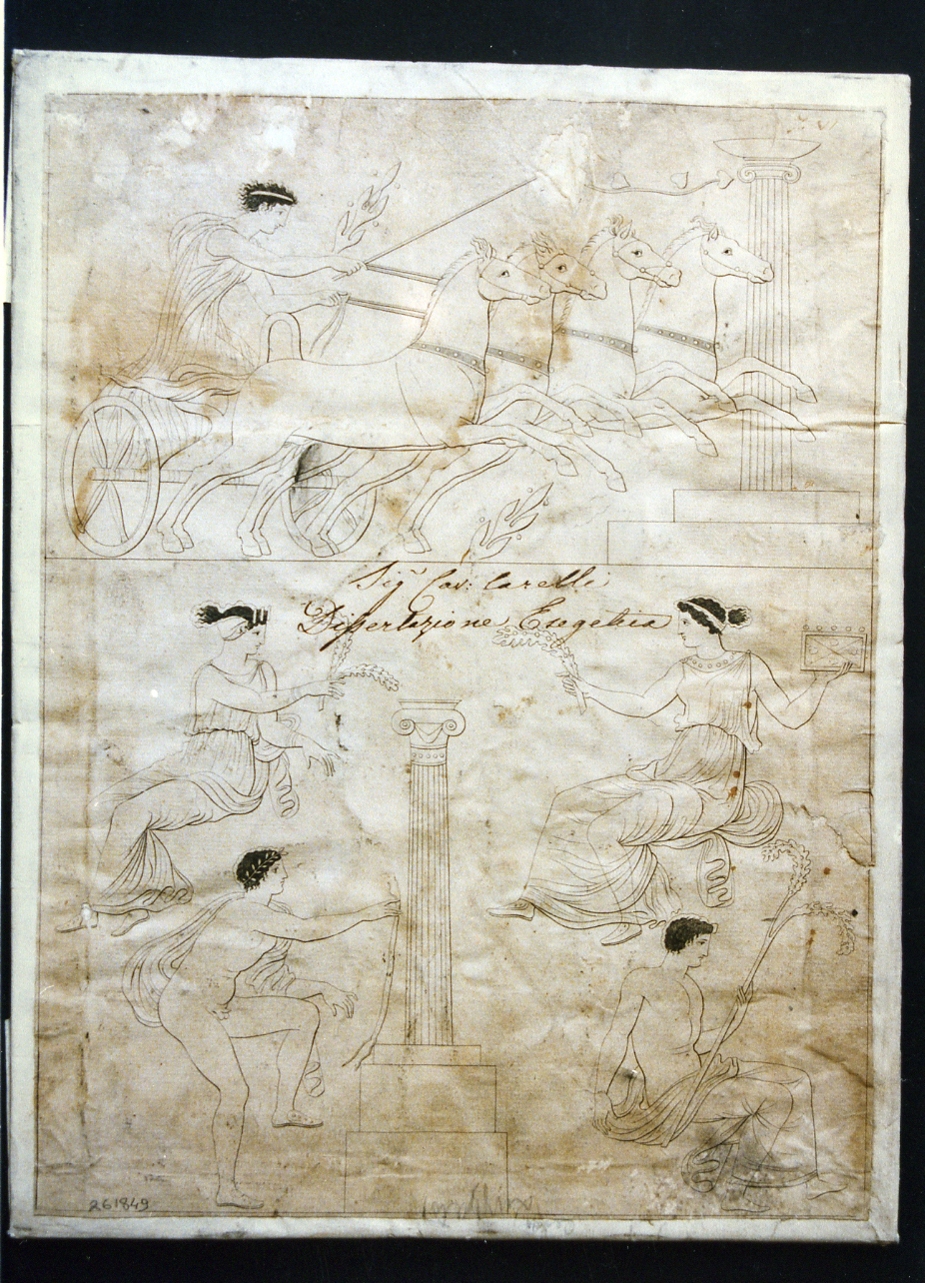 Sig.r Cav: Carelli
Dissertazione Esegetica
261849